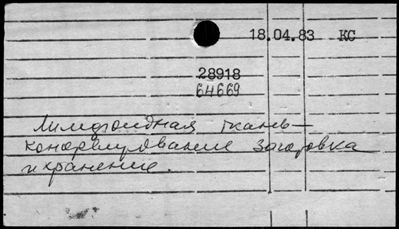 18.04.83 КС
28918
64669
Лимфоидная ткань —
консервирование заготовка
и хранение.